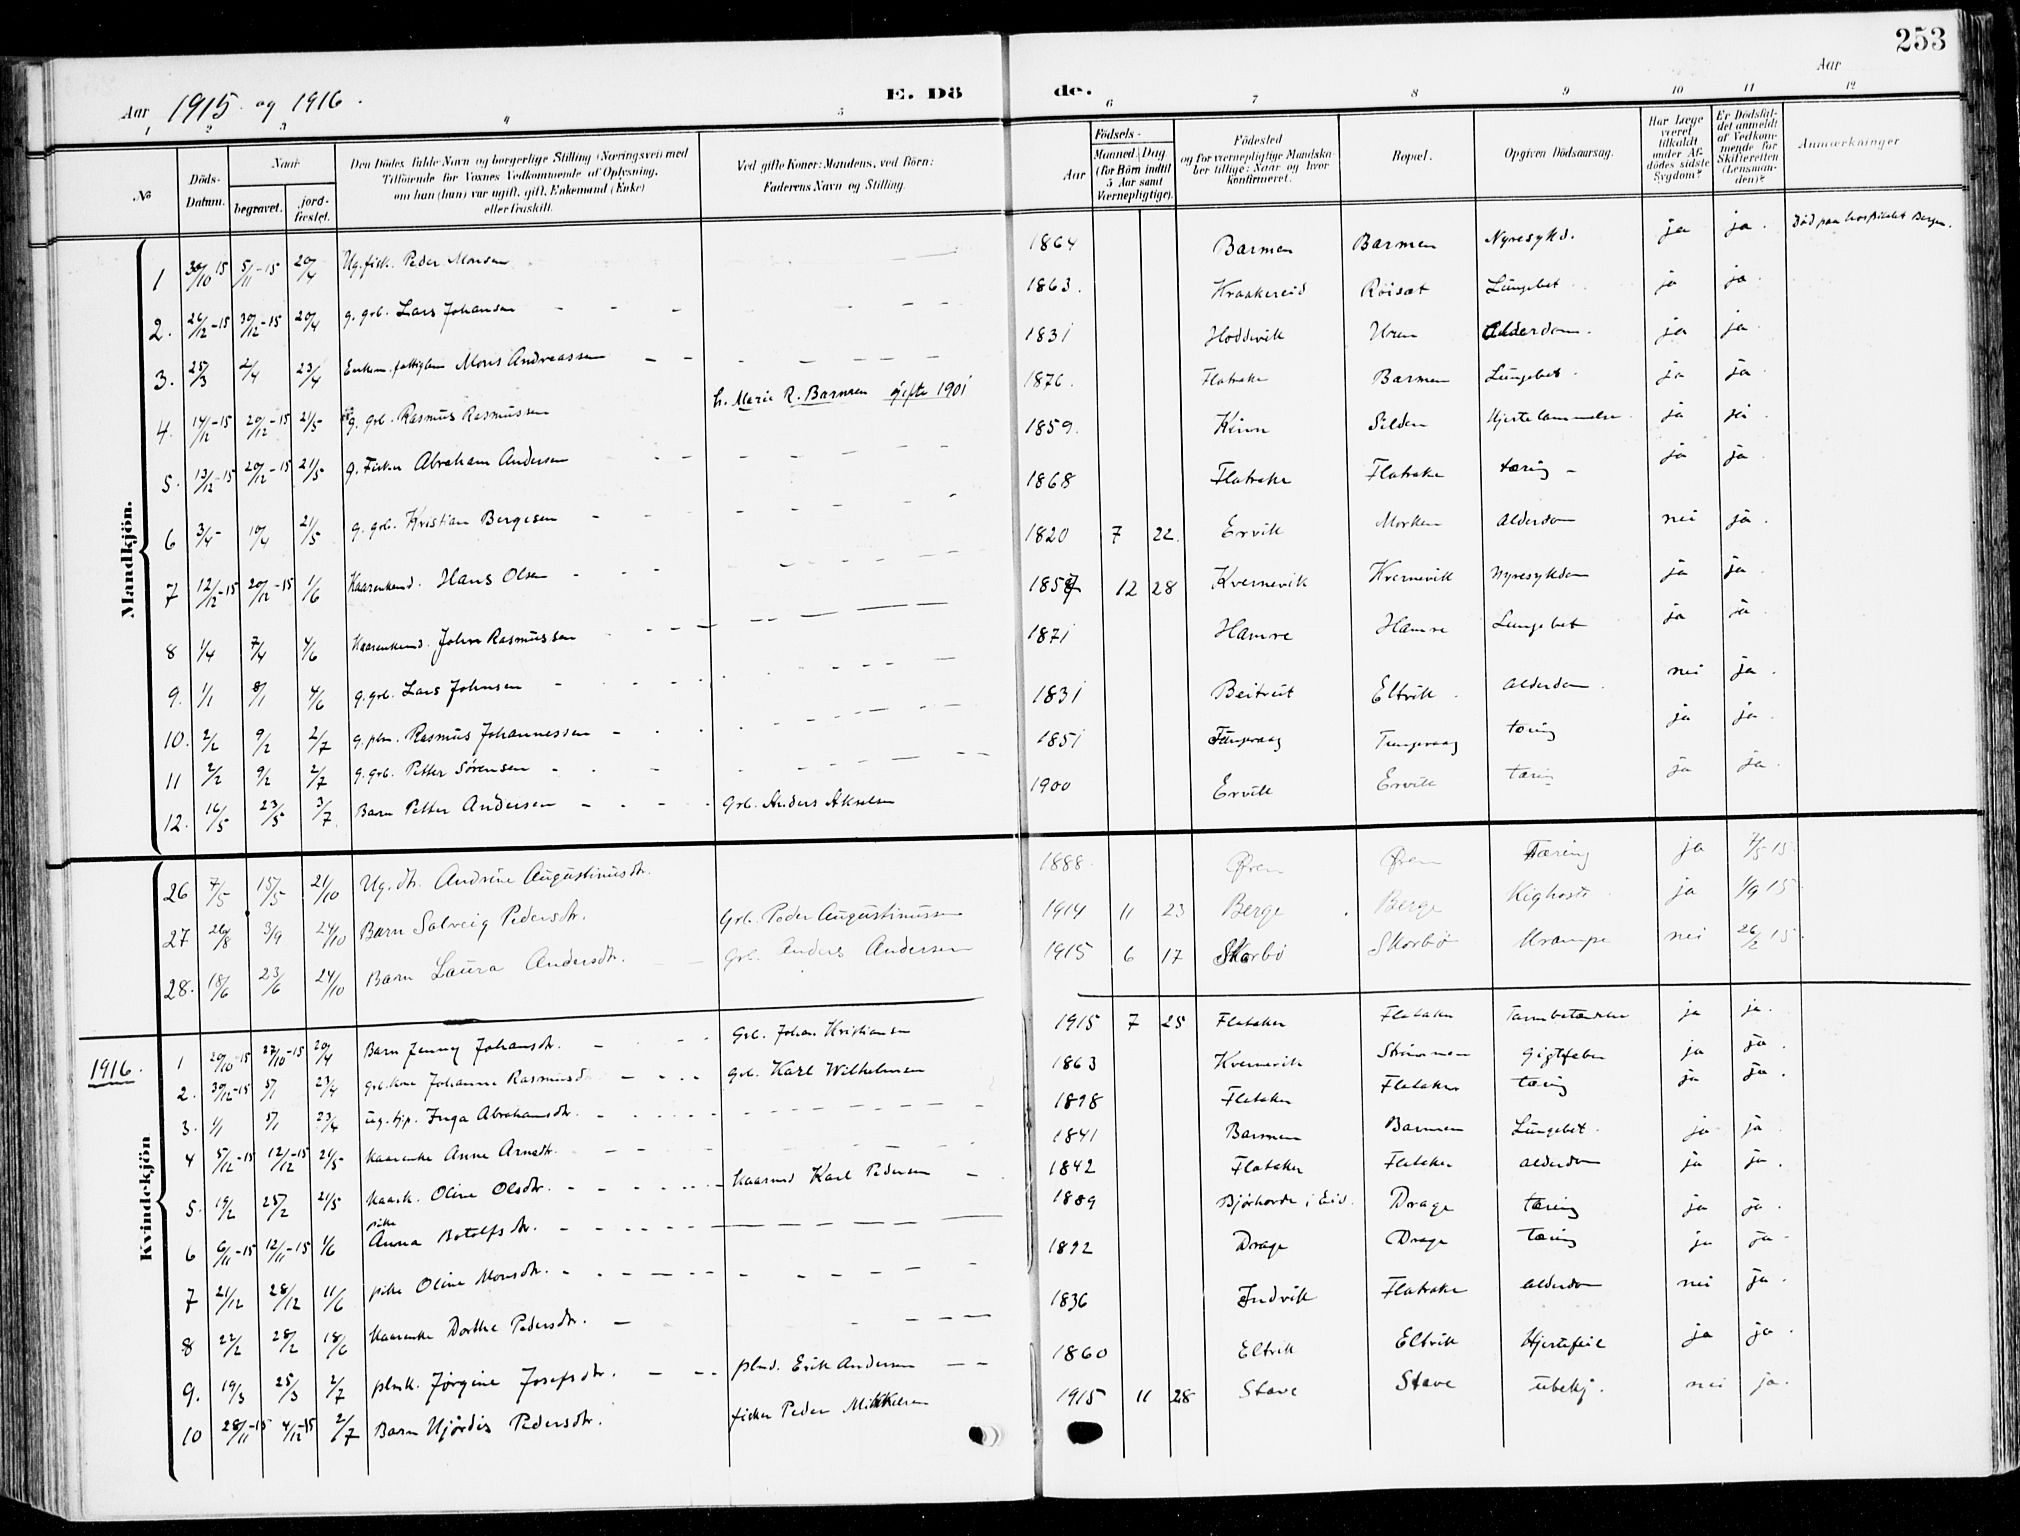 253
Aar 1915 og 1916.
E. Döde.
Aar
1 2 3 4 5 6 7 8 9 10 11 12
No
Döds-Datum.
Naar
begravet.
jord-fæstet.
Den Dödes fulde Navn og borgerlige Stilling (Næringsvei) med Tilföiende for Voxnes Vedkommende af Oplysning, om han (hun) var ugift, gift, Enkemand (Enke) eller fraskilt.
Ved gifte Koner: Mandens, ved Börn: Faderens Navn og Stilling.
Födsels-
Aar
Maaned. Dag
(for Börn indtil 5 Aar samt Værnepligtige).
Födested og for værnepligtige Mandskaber tillige: Naar og hvor konfirmeret.
Bopæl.
Opgiven Dödsaarsag.
Har Læge været tilkaldt under Afdödes sidste Sygdom?
Er Dödsfaldet anmeldt af Vedkommende for Skifteretten (Lensmanden)?
Anmærkninger
Mandkjön.
1 30/10 15 5/11-15 20/4 Ug. fisk. Peder Monsen 1864 Barmen Barmen Nyresykd. ja ja. Död paa hospitalet Bergen.
2. 26/12-15 30/12-15 20/4 g. grb. Lars Johansen 1863. Kraakereid Röiset Lungebet ja ja.
3. 25/3 2/4 23/4 Enkem. fattiglem Mons Andreassen 1831 Hoddevik Uren Alderdom. ja ja.
4. 14/12-15 20/12-15 21/5 g. grb. Rasmus Rasmussen h. Marie R. Barmen gifte 1901 1876. Flatrake Barmen Lungebet. ja ja.
5. 13/12-15 20/12-15 21/5 g. Fisker Abraham Andersen 1859. Kinn Silden Hjertelammelse. ja ja.
6 3/4- 10/4 21/5 g. grb. Kristian Bergesen 1868 Flatrake Flatrake tæring - ja ja.
7 12/12-15 20/12-15 1/6 Kaarenkemd. Hans Olsen 1820 7 22. Ervik Morken alderdom nei ja.
8 1/4 7/4 4/6 Kaarenkemd. John Rasmussen 1857 12 28 Kvernevik Kvernevik nyresykdom ja ja.
9. 1/1 8/1 4/6 g. grb. Lars Johnsen 1871 Hamre Hamre Lungebet ja ja.
10. 2/2 9/2 2/7 g. plm. Rasmus Johannessen 1831 Beitveit Eltvik. alderdom. nei ja.
11 2/2 9/2 2/7 g. grb. Petter Sörensen 1851 Tungevaag Tungevaag tæring ja ja.
12. 16/5 23/5 3/7 Barn Petter Andersen Grb. Anders Akselsen 1900 Ervik Ervik tæring ja ja.
26 7/5 15/5 21/10 Ug. dtr. Andrine Augustinusdtr. 1888. Øren Øren Tæring ja 7/5 15.
27 26/8 3/9 24/10 Barn Solveig Pedersdtr. Grb. Peder Augustinussen 1914 11 23 Berge Berge Kighoste ja 1/9 15
28. 18/6 23/6 24/10 Barn Laura Andersdtr. Grb. Anders Andersen 1915 6 17 Skorbø Skorbø Krampe nei 26/2 15.
1916.
Kvindekjön
1 20/10-15 27/10-15 20/4 Barn Jenny Johansdtr. Grb. Johan Kristiansen 1915 7 25 Flataker Flataker Tarmbetændelse ja ja.
2. 30/12-15 5/1 23/4 Grb. kone Johanne Rasmusd. grb. Karl Wilhelmsen 1863 Kvernevik Strömmen Gigtfeber ja ja.
3. 1/1 5/1 23/4 ug. tjp. Inga Abrahamsdtr. 1898 Flataker Flataker tæring ja ja.
4 5/12-15 12/12-15 21/5 kaarenke Anne Arnedtr. 1841 Barmen Barmen Lungebet. ja ja
5. 19/2 25/2 21/5 kaark. Oline Olsdtr. kaarmd Karl Pedersen 1842 Flataker Flataker alderdom ja ja.
6 6/11-15 12/11-15 1/6 pike Anna Botolfsdtr. 1889 Bjørhovde i Eid. Drage tæring ja ja.
7 21/12 28/12 11/6 pike Oline Monsdtr. 1892 Drage Drage tæring ja ja
8 22/2 28/2 18/6 kaarenke Dorthe Pedersdtr. 1836 Indvik Flatrake alderdom nei ja.
9. 19/3 25/3 2/7 plmk. Jörgine Josefsdtr. plmd. Erik Andersen 1860 Eltvik Eltvik Hjertefeil ja ja.
10 28/11-15 4/12-15 2/7 Barn Hjördis Pedersdtr. fisker Peder Mikkelsen 1915 11 28 Stave Stave ubekj. nei ja.